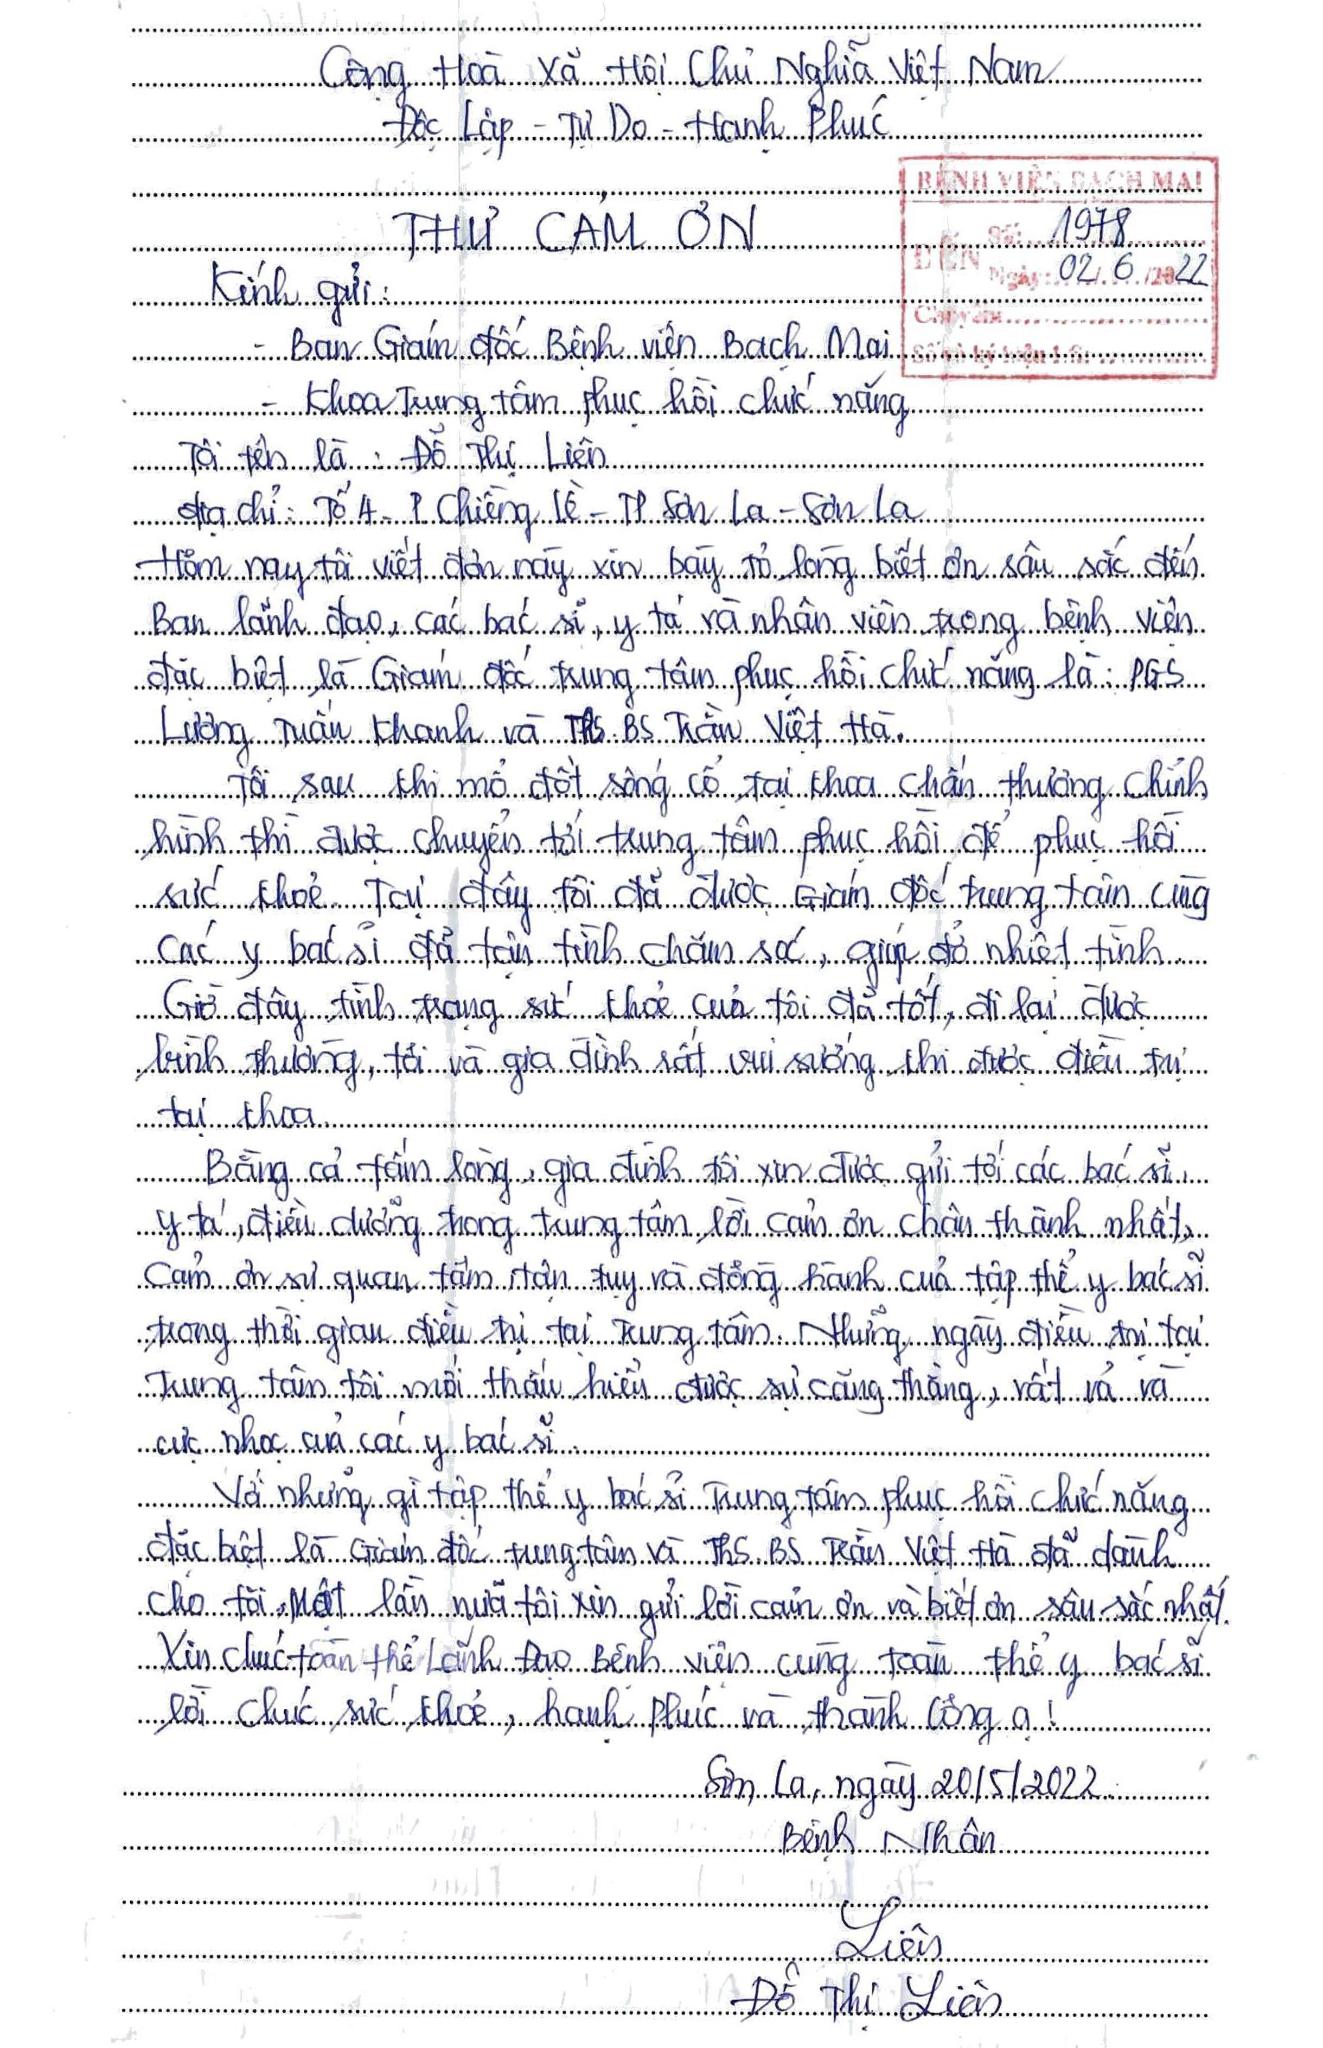 Cộng Hoà Xã Hội Chủ Nghĩa Việt Nam
Độc Lập - Tự Do - Hạnh Phúc
BỆNH VIỆN BẠCH MAI
THƯ CẢM ƠN
Số: 1978
ĐẾN
Ngày: 02/6/2022
Kính gửi:
Chuyển:
- Ban Giám đốc Bệnh viện Bạch Mai
Số và ký hiệu HS:
- Khoa Trung tâm phục hồi chức năng
Tôi tên là: Đỗ Thị Liên
địa chỉ: Tổ 4 - P Chiềng Lề - TP Sơn La - Sơn La
Hôm nay tôi viết đơn này xin bày tỏ lòng biết ơn sâu sắc đến
Ban lãnh đạo, các bác sĩ, y tá và nhân viên trong bệnh viện
đặc biệt là Giám đốc trung tâm phục hồi chức năng là: PGS
Lương Tuấn Khanh và ThS BS Trần Việt Hà.
Tôi sau khi mổ đốt sống cổ tại khoa chấn thương chỉnh
hình thì được chuyển tới trung tâm phục hồi để phục hồi
sức khoẻ. Tại đây tôi đã được Giám đốc trung tâm cùng
các y bác sĩ đã tận tình chăm sóc, giúp đỡ nhiệt tình.
Giờ đây tình trạng sức khoẻ của tôi đã tốt, đi lại được
bình thường, tôi và gia đình rất vui sướng khi được điều trị
tại khoa.
Bằng cả tấm lòng, gia đình tôi xin được gửi tới các bác sĩ,
y tá, điều dưỡng trong trung tâm lời cảm ơn chân thành nhất,
Cảm ơn sự quan tâm, tận tụy và đồng hành của tập thể y bác sĩ
trong thời gian điều trị tại trung tâm. Những ngày điều trị tại
trung tâm tôi mới thấu hiểu được sự căng thẳng, vất vả và
cực nhọc của các y bác sĩ.
Với những gì tập thể y bác sĩ Trung tâm phục hồi chức năng
đặc biệt là Giám đốc trung tâm và ThS. BS Trần Việt Hà đã dành
cho tôi, Một lần nữa tôi xin gửi lời cảm ơn và biết ơn sâu sắc nhất.
Xin chúc toàn thể Lãnh Đạo Bệnh viện cùng toàn thể y bác sĩ
lời chúc sức khoẻ, hạnh phúc và thành công ạ!
Sơn La, ngày 20/5/2022.
Bệnh Nhân
Liên
Đỗ Thị Liên